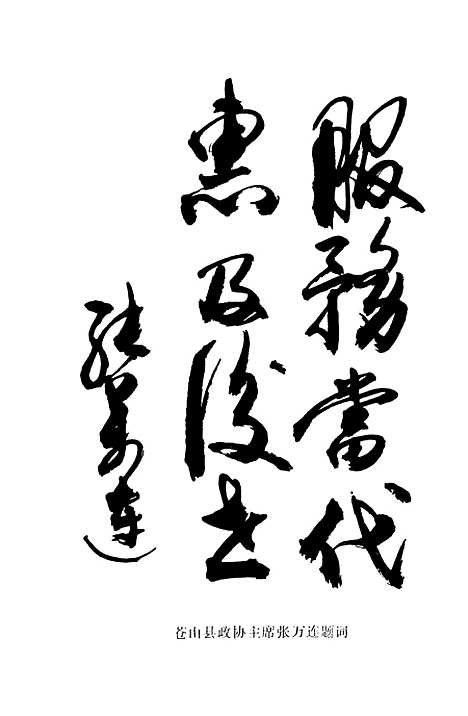 服務當代
惠及後世
張万連
苍山县政协主席张万连题词